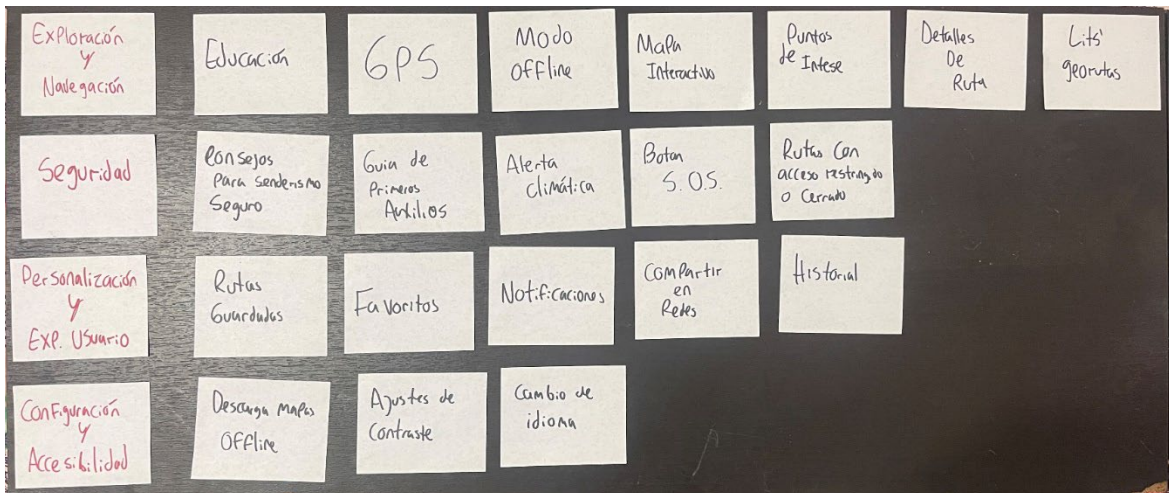 Exploración
y
Navegación
Educación
GPS
Modo
Offline
Mapa
Interactivo
Puntos
de Intese
Detalles
De
Ruta
Lits'
georutas
Seguridad
Consejos
Para Senderismo
Seguro
Guia de
Primeros
Auxilios
Alerta
Climática
Boton
S.O.S.
Rutas Con
acceso restringido
o Cerrado
Personalización
y
Exp. Usuario
Rutas
Guardadas
Favoritos
Notificaciones
Compartir
en
Redes
Historial
Configuración
y
Accesibilidad
Descarga Mapas
Offline
Ajustes de
Contraste
Cambio de
idioma